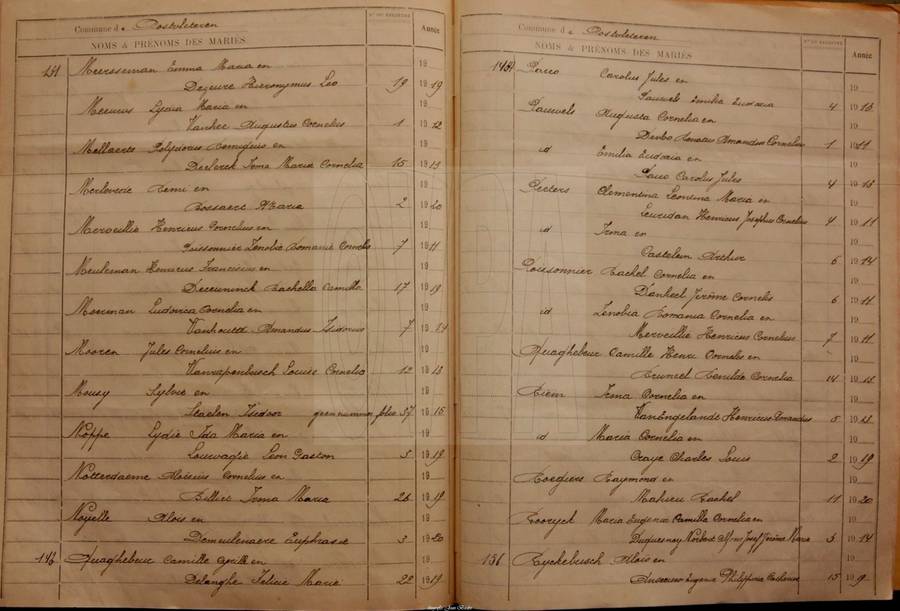 Commune d e Oostvleteren
NOMS & PRÉNOMS DES MARIÉS
Nº DU REGISTRE
Année
Meersseman Emma Maria en
Dezeure Hieronymus Leo 19 1919
Meurus Lydia Maria en
Vanhee Augustus Cornelius 1 1912
Mellaerts Remigius en
Declerck Irma Maria Cornelia 15 1913
Merlevede Remi en
Bossaert Maria 2 1920
Merveillie Henricus Cornelius en
Poissonnier Zenobie Romanie Cornelie 7 1911
Meuleman Henricus Franciscus en
Decruninck Rachella Camilla 17 1919
Moerman Ludovica Cornelia en
Vanhoutte Amandus Isidorus 7 19
Mooren Jules Cornelius en
Louise Cornelia 12 1913
Mousy Sylvie en
Staelen Isidoor geen nummer folio 37 1915
Noppe Lydie Ida Maria en
Louwagie Leon Gaston 3 1919
Notterdaeme Aloisius Cornelius en
Billiet Irma Maria 26 1919
Noyelle Alois en
Demeulenaere Euphrasie 3 1920
143 Quaghebeur Camille Cyrille en
Delanghe Felicie Marie 22 1919
Commune d e Oostvleteren
NOMS & PRÉNOMS DES MARIÉS
Nº DU REGISTRE
Année
Carolus Jules en
Pauwels Emilia Eudoxia 4 1913
Pauwels Augusta Cornelia en
Amandus Cornelius 1 1911
id Emilia Eudoxia en
Carolus Jules 4 1913
Peeters Clementina Leontina Maria en
Leuridan Henricus Josephus Cornelius 4 1911
id Irma en
Castelein Arthur 6 1914
Poissonnier Rachel Cornelia en
Danheel Jérôme Cornelis 6 1911
id Zenobia Romania Cornelia en
Merveillie Henricus Cornelius 7 1911
Quaghebeur Camille Henri Cornelis en
Bruneel Renilde Cornelia 14 19
Riem Irma Cornelia en
Van Engelandt Henricus Amandus 5 19
id Maria Cornelia en
Craye Charles Louis 2 1919
Roegiers Raymond en
Mahieu Rachel 11 1920
Rooryck Maria Eugenie Camilla Cornelia en
Duquesnoy Norbert Jozef Jérôme Marie 3 1914
151 Ryckebusch Alois en
Eugenie Philippina Catharina 15 19